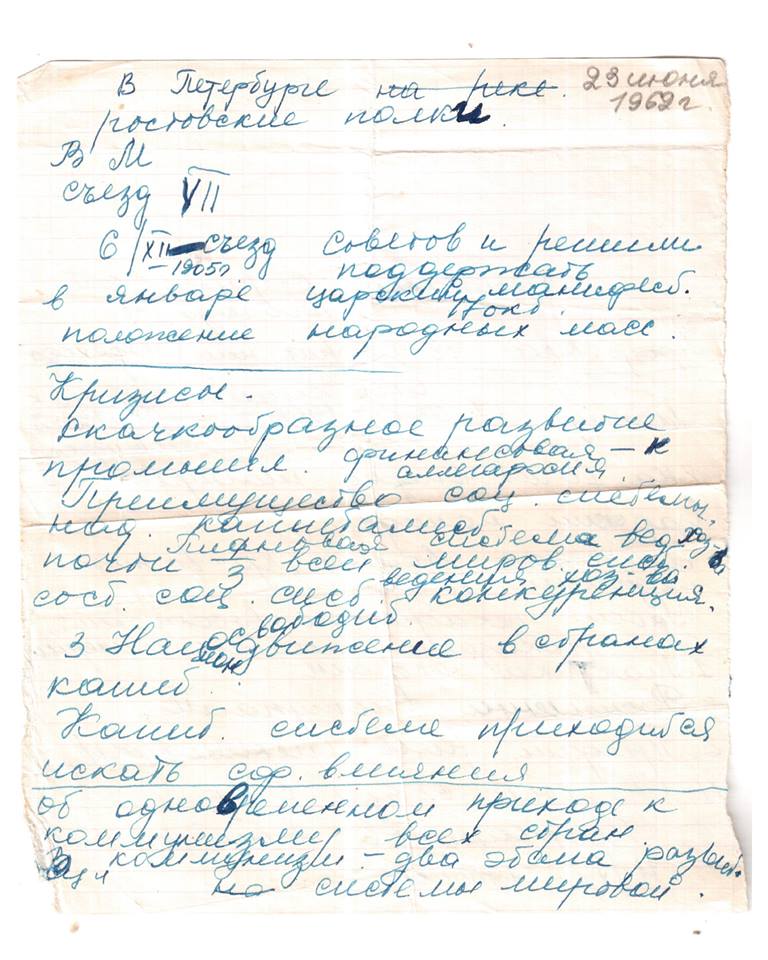 В Петербурге на реке.
23 июня
1962 г.
ростовские полки.
В М
съезд VII
6/XII съезд советов и решили
– 1905 г поддержать
в январе царский манифест.
17 окт.
положение народных масс.
Кризисы.
скачкообразное развитие
промышл. финансовая – к
олигархия
Преимущество соц. системы
над капиталист.
Плановая система вед. хоз-ва
почти 1/3 всей миров. сист.
ведения хоз-ва
сост. соц. сист. конкуренция.
освободит.
3 Нац. движение в странах
капит.
Капит. системе приходится
искать сф. влияния
об одновременном приходе к
коммунизму всех стран
коммунизм – два этапа развит.
на системы мировой.